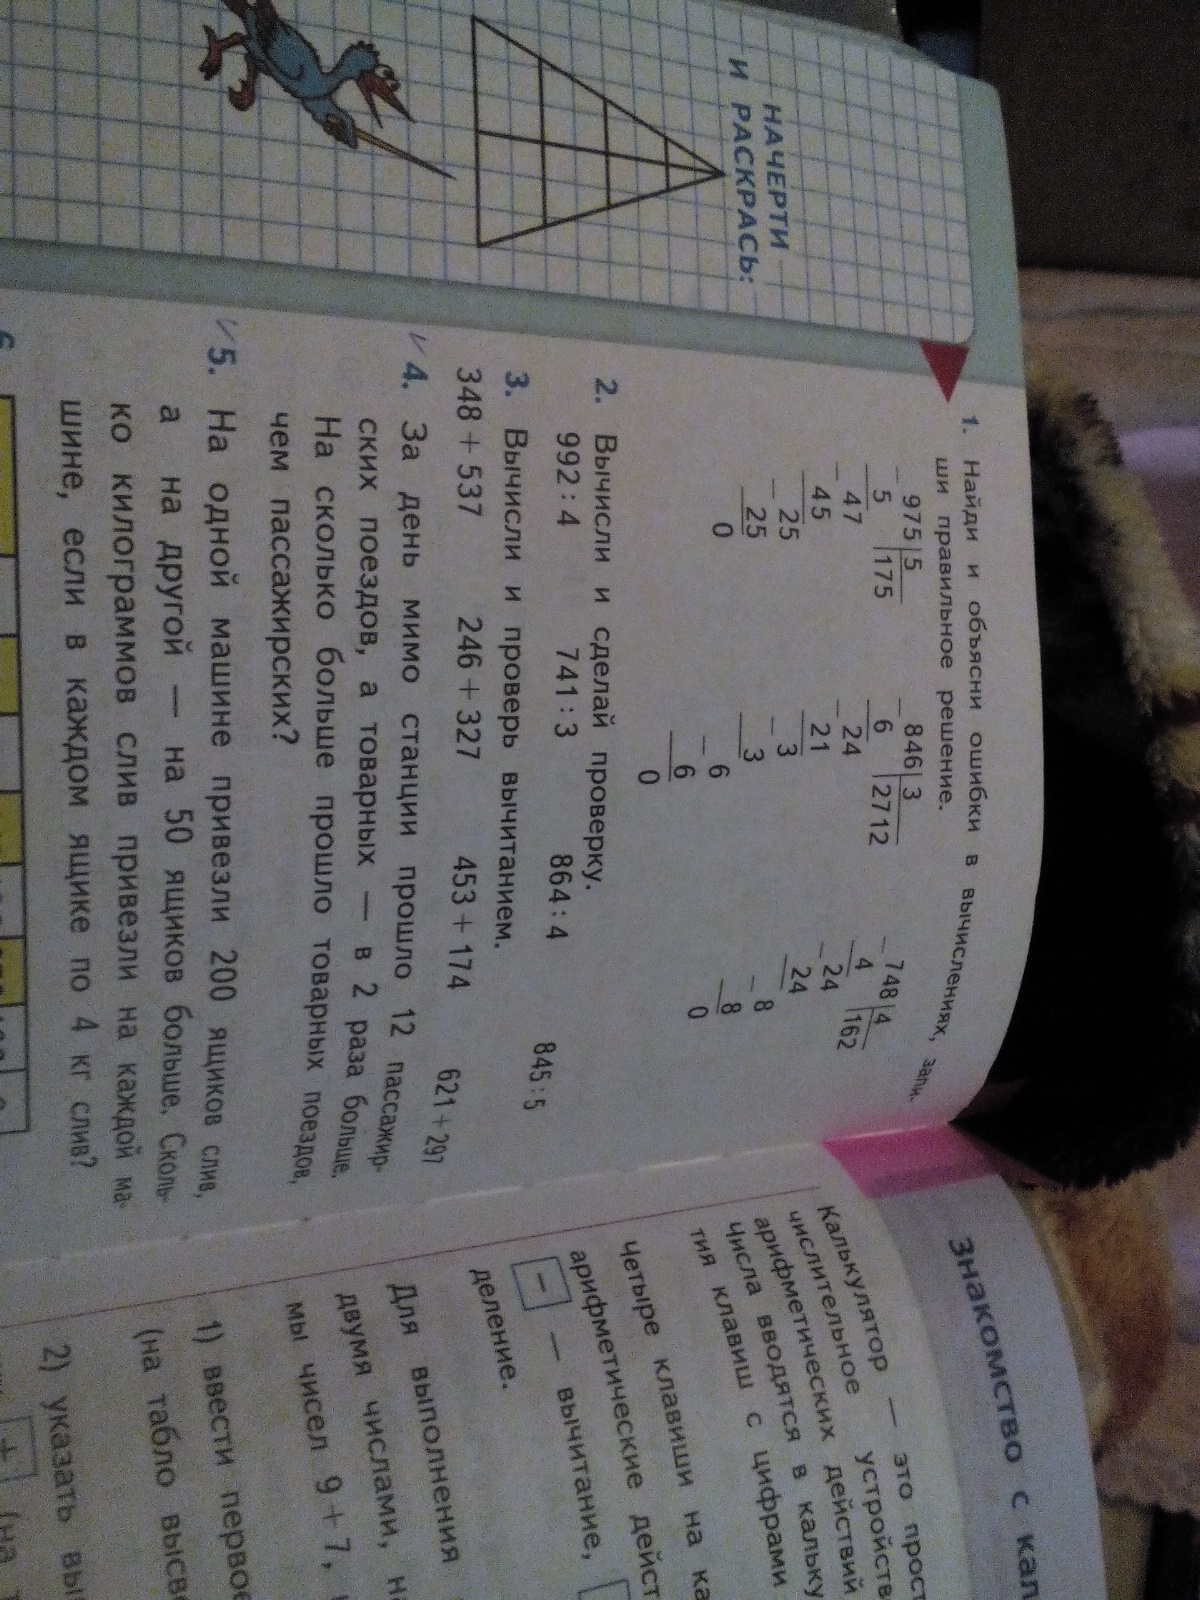 НАЧЕРТИ
И РАСКРАСЬ:
1. Найди и объясни ошибки в вычислениях, запи-
ши правильное решение.
− 975|5
5 |175
− 47
45
− 25
25
0
− 846|3
6 |2712
− 24
21
− 3
3
− 6
6
0
− 748|4
4 |162
− 24
24
− 8
8
0
2. Вычисли и сделай проверку.
992 : 4 741 : 3 864 : 4 845 : 5
3. Вычисли и проверь вычитанием.
348 + 537 246 + 327 453 + 174 621 + 297
4. За день мимо станции прошло 12 пассажир-
ских поездов, а товарных — в 2 раза больше.
На сколько больше прошло товарных поездов,
чем пассажирских?
5. На одной машине привезли 200 ящиков слив,
а на другой — на 50 ящиков больше. Сколь-
ко килограммов слив привезли на каждой ма-
шине, если в каждом ящике по 4 кг слив?
6
Знакомство с кал
Калькулятор — это прост
числительное устройств
арифметических действий
Числа вводятся в кальку
тия клавиш с цифрами
Четыре клавиши на ка
арифметические дейст
− — вычитание,
деление.
Для выполнения
двумя числами, н
мы чисел 9 + 7,
1) ввести первое
(на табло высве
2) указать вы
+ (на